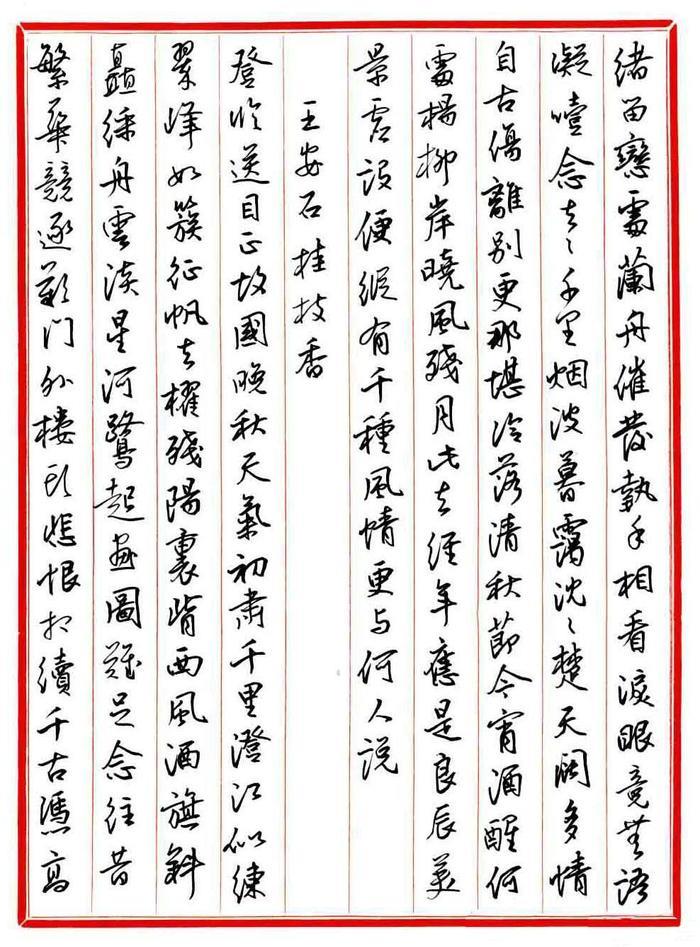 绪留戀處蘭舟催發執手相看淚眼竟無語
凝噎念去〻千里烟波暮靄沈〻楚天闊多情
自古傷離别更那堪冷落清秋節今宵酒醒何
處楊柳岸曉風殘月此去經年應是良辰美
景虚設便縱有千種風情更与何人説
王安石桂枝香
登臨送目正故國晚秋天氣初肅千里澄江似練
翠峰如簇征帆去櫂殘陽裏背西風酒旗斜
矗綵舟雲淡星河鷺起畫圖難足念往昔
繁華競逐歎門外樓頭悲恨相續千古憑高